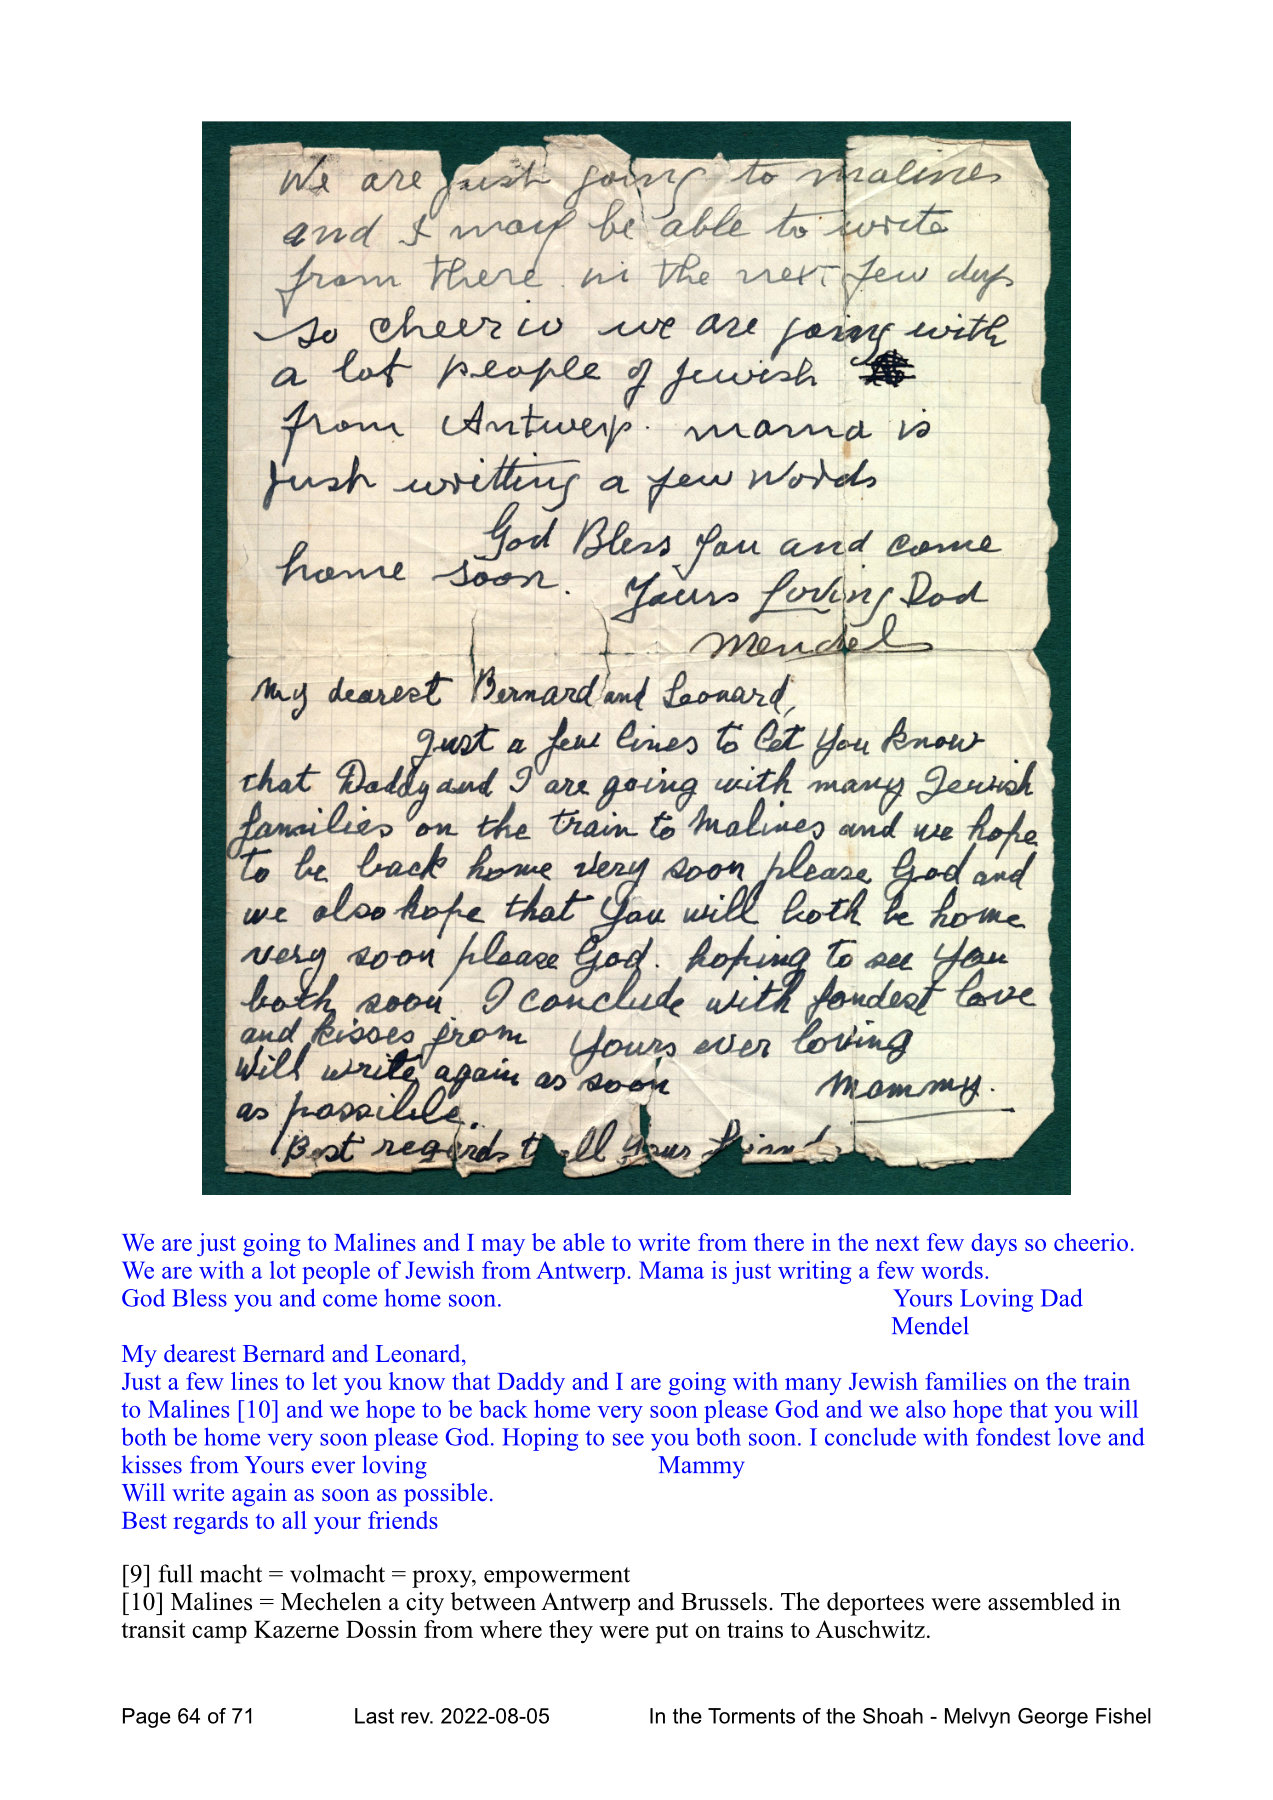 We are just going to malines
and I may be able to write
from there in the next few days
so cheerio we are going with
a lot people of Jewish
from Antwerp. mama is
just writting a few words
God Bless you and come
home soon. Yours Loving Dad
Mendel
My dearest Bernard and Leonard,
Just a few lines to let you know
that Daddy and I are going with many Jewish
families on the train to Malines and we hope
to be back home very soon please God and
we also hope that you will both be home
very soon please God. hoping to see you
both soon. I conclude with fondest love
and kisses from Yours ever loving
Will write again as soon Mammy.
as possible.
Best regards t all your friends
We are just going to Malines and I may be able to write from there in the next few days so cheerio.
We are with a lot people of Jewish from Antwerp. Mama is just writing a few words.
God Bless you and come home soon. Yours Loving Dad
Mendel
My dearest Bernard and Leonard,
Just a few lines to let you know that Daddy and I are going with many Jewish families on the train
to Malines [10] and we hope to be back home very soon please God and we also hope that you will
both be home very soon please God. Hoping to see you both soon. I conclude with fondest love and
kisses from Yours ever loving Mammy
Will write again as soon as possible.
Best regards to all your friends
[9] full macht = volmacht = proxy, empowerment
[10] Malines = Mechelen a city between Antwerp and Brussels. The deportees were assembled in
transit camp Kazerne Dossin from where they were put on trains to Auschwitz.
Page 64 of 71 Last rev. 2022-08-05 In the Torments of the Shoah - Melvyn George Fishel